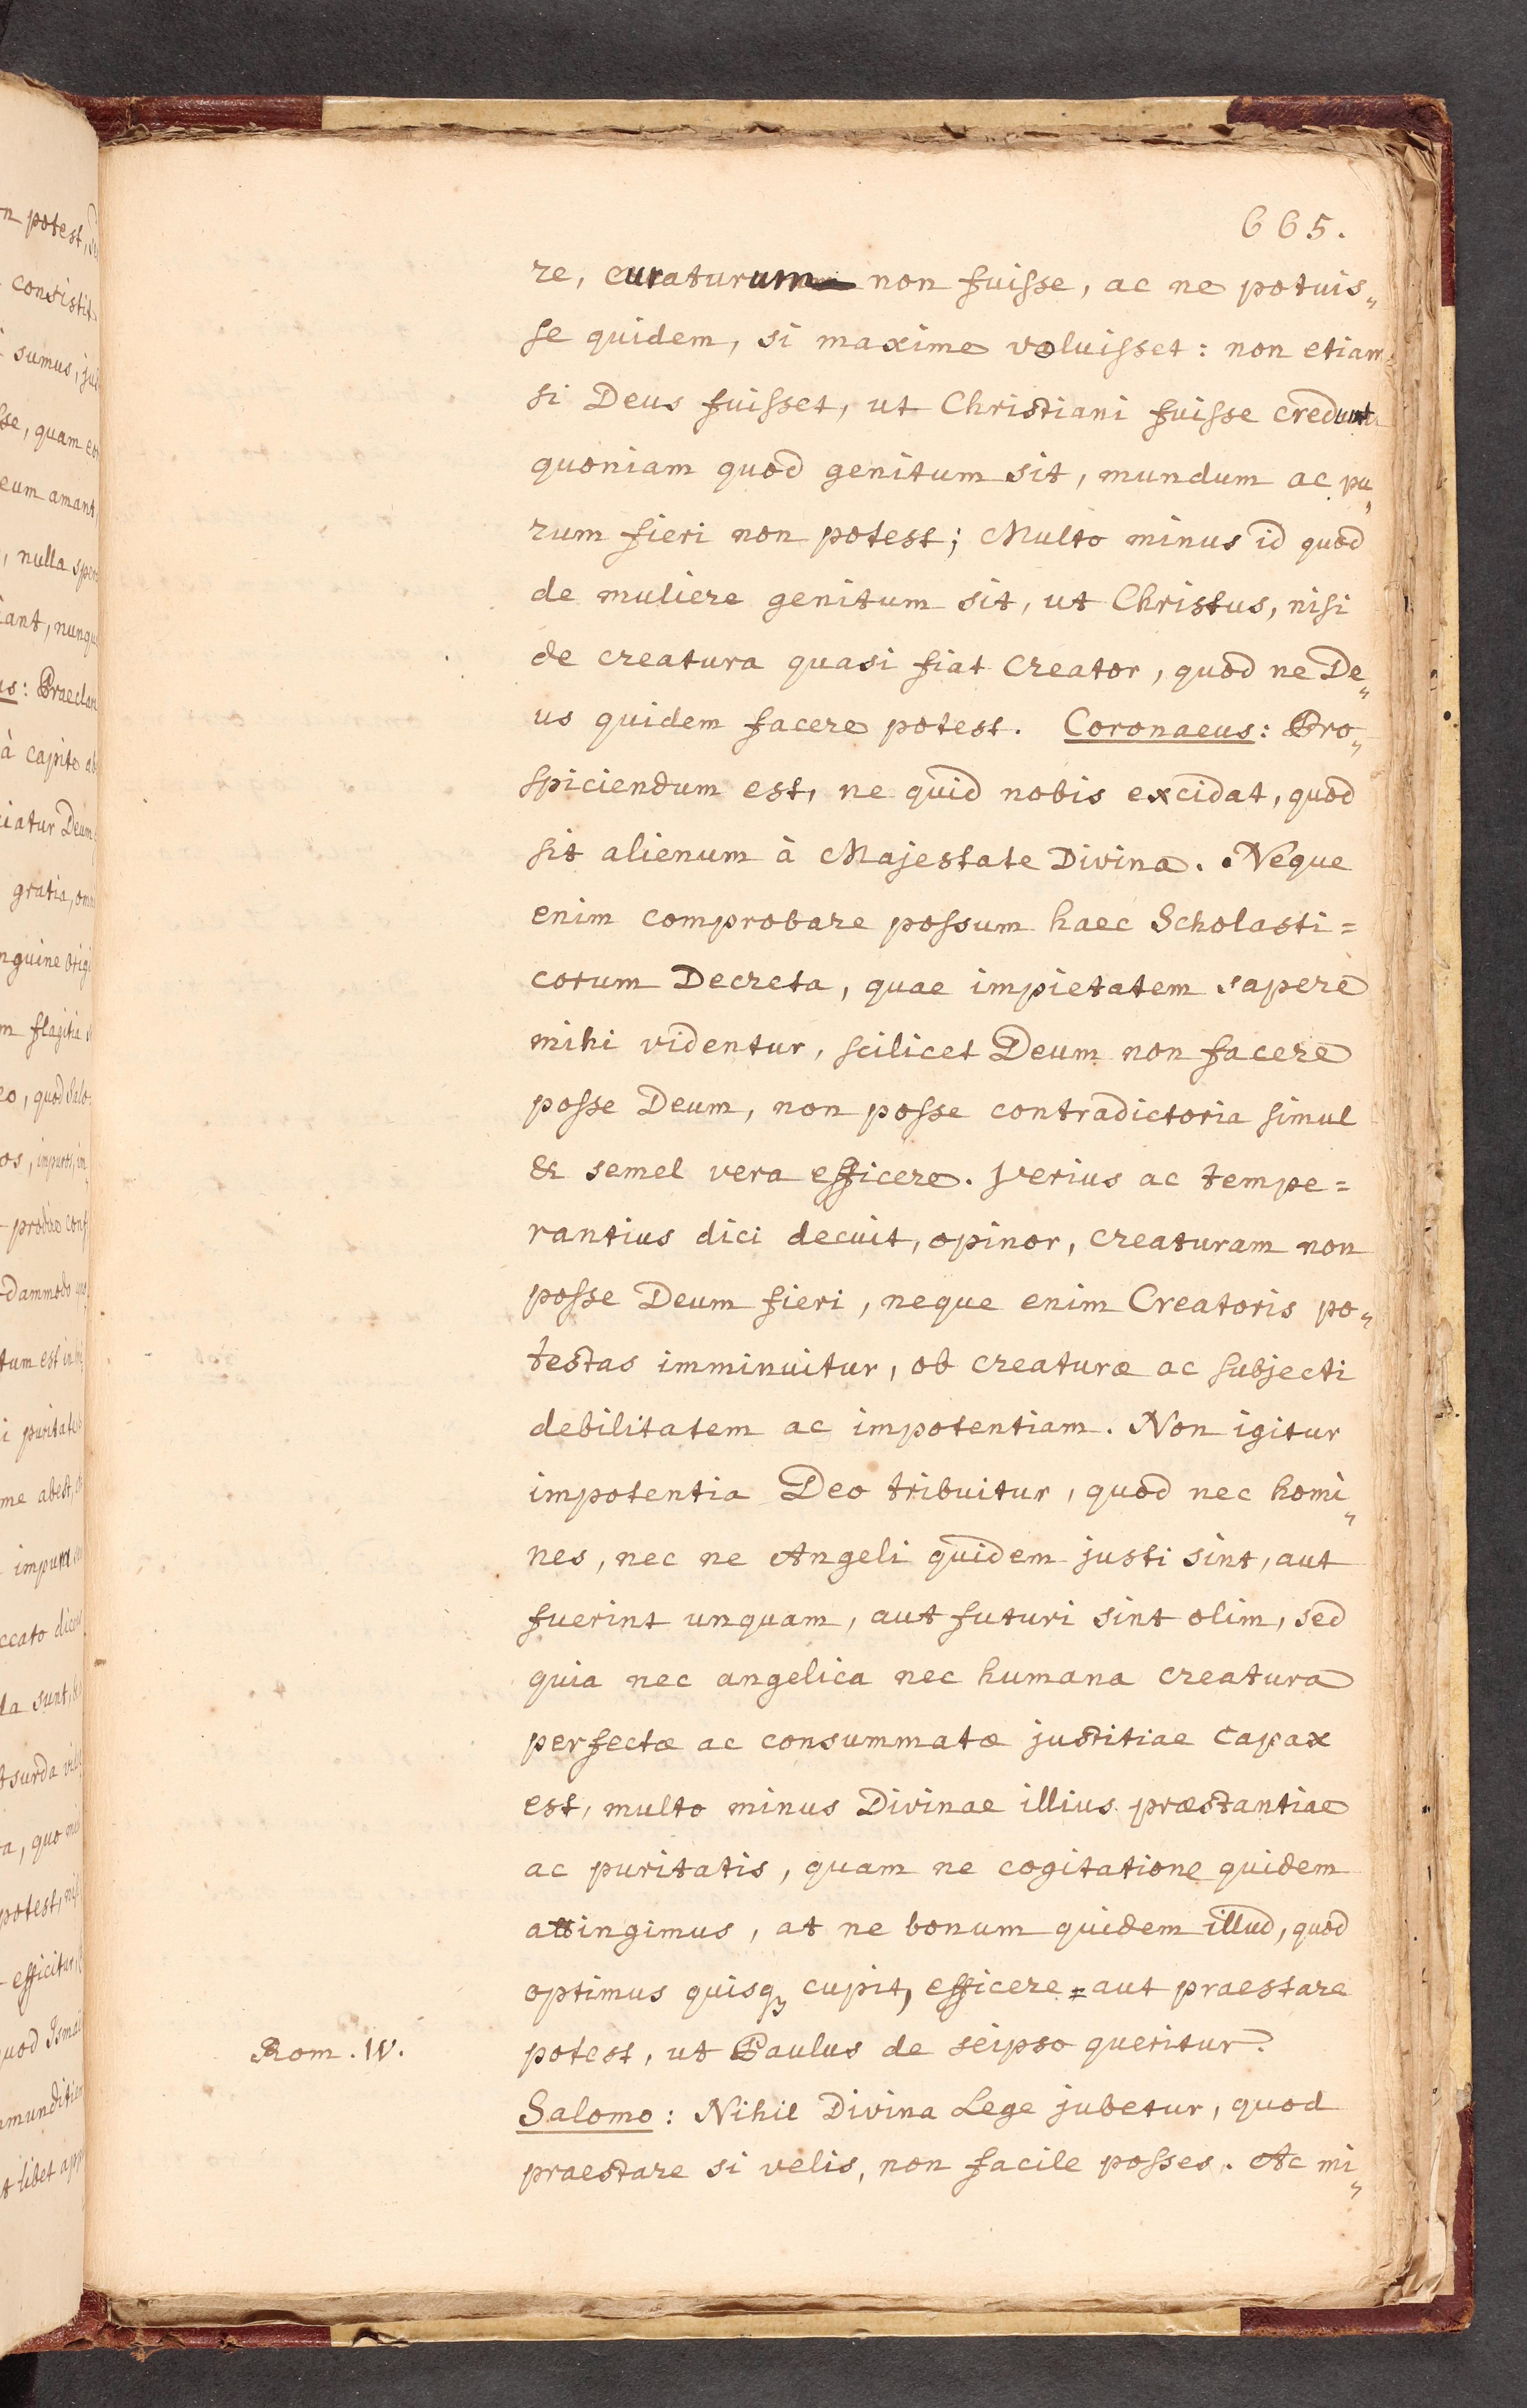 665.
re, curaturum non fuisse, ac ne potuis„
se quidem, si maxime voluisset: non etiam=
si Deus fuisset, ut Christiani fuisse credunt
quoniam quod genitum sit, mundum ac pu„
rum fieri non potest; Multo minus id quod
de muliere genitum sit, ut Christus, nisi
de creatura quasi fiat Creator, quod ne De„
us quidem facere potest. Coronaeus: Pro„
spiciendum est, ne quid nobis excidat, quod
sit alienum à Majestate Divina. Neque
enim comprobare possum haec Scholasti=
corum Decreta, quae impietatem sapere
mihi videntur, scilicet Deum non facere
posse Deum, non posse contradictoria simul
& semel vera efficere. Verius ac tempe=
rantius dici decuit, opinor, creaturam non
posse Deum fieri, neque enim Creatoris po„
testas imminuitur, ob creaturæ ac subjecti
debilitatem ac impotentiam. Non igitur
impotentia Deo tribuitur, quod nec homi„
nes, nec ne Angeli quidem justi sint, aut
fuerint unquam, aut futuri sint olim, sed
quia nec angelica nec humana creatura
perfectæ ac consummatæ justitiae capax
est, multo minus Divinae illius præstantiae
ac puritatis, quam ne cogitatione quidem
attingimus, at ne bonum quidem illud, quod
optimus quisqꝫ cupit, efficere aut praestare
Rom. IV. potest, ut Paulus de seipso queritur.
Salomo: Nihil Divina Lege jubetur, quod
praestare si velis, non facile posses. Ac mi„
n potest,
consistit
sumus,
se, quam
eum amant,
, nulla
iant,
us:
à capite
iatur Deum
gratia,
nguine
m flagitia
eo, quod Salo=
os, impuros,
dammodo
tum est
me abest,
ccato
la sunt,
bsurda
a, quo
potest,
efficitur,
quod
t libet